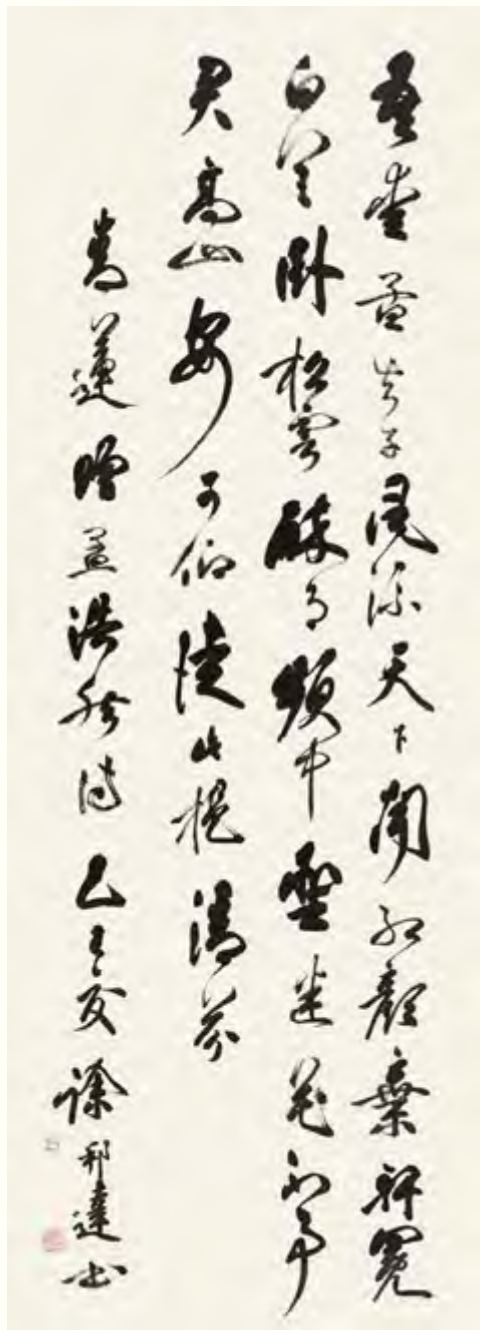 吾愛孟夫子風流天下聞紅顏棄軒冕
白首臥松雲醉月頻中聖迷花不事
君高山安可仰徒此揖清芬
青蓮贈孟浩然詩 夏 徐邦達書